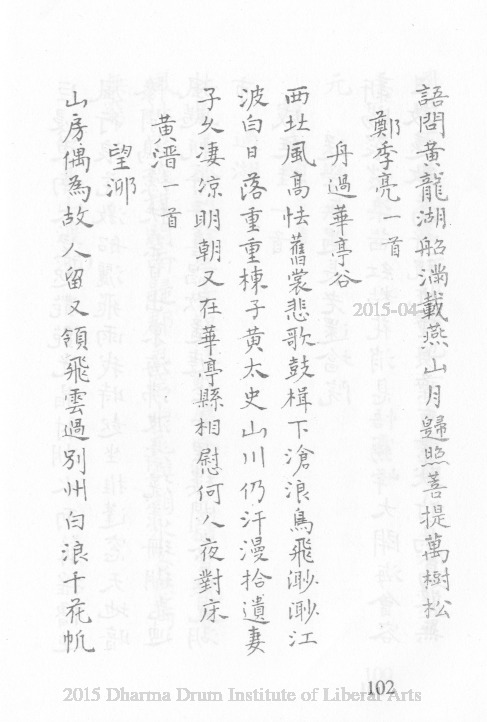 語問黃龍湖船滿載燕山月歸照菩提萬樹松
鄭季亮一首
舟過華亭谷
西北風高怯舊裳悲歌鼓楫下滄浪鳥飛渺渺江
波白日落重重棟子黃太史山川仍汗漫拾遺妻
子久凄涼明朝又在華亭縣相慰何人夜對床
黃溍一首
望泖
山房偶為故人留又領飛雲過別州白浪千花帆
102
2015-04
2015 Dharma Drum Institute of Liberal Arts